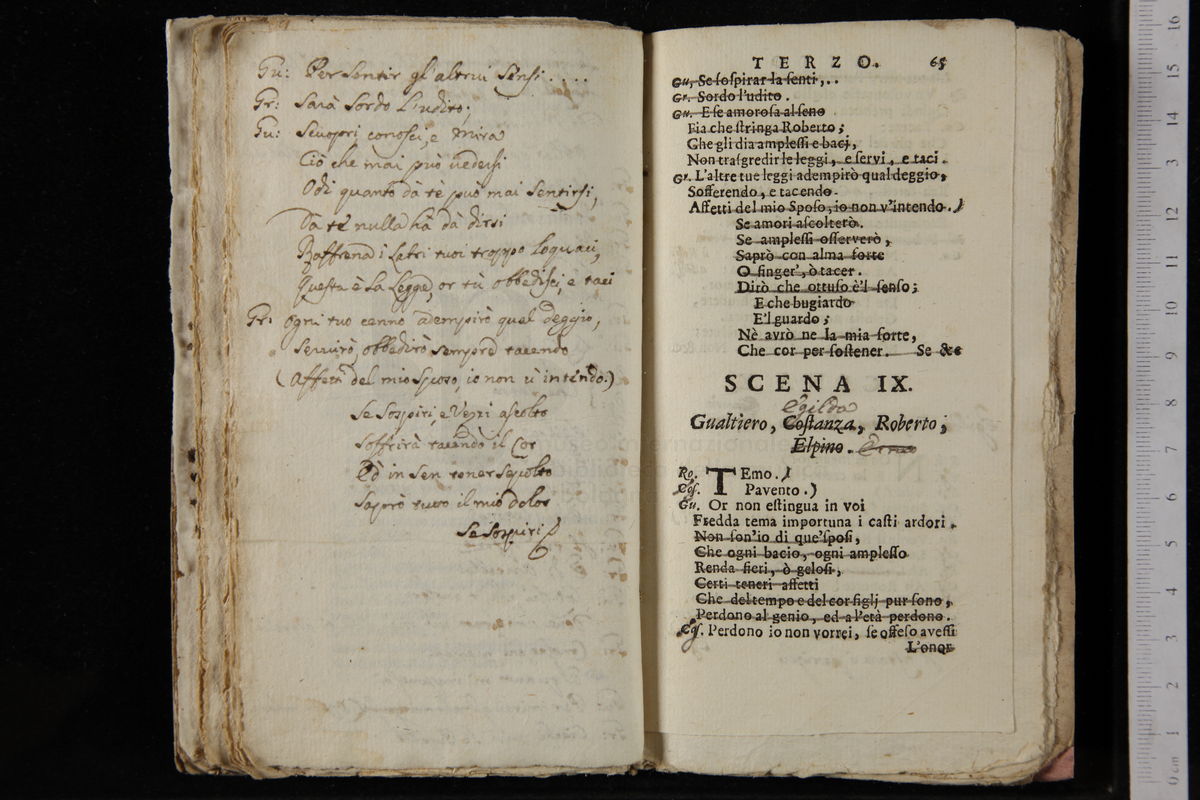 Gu: Per sentir gl'altrui sensi....
Gr: Sarà sordo l'udito;
Gu: Scuopri, conosci, e mira
Ciò che mai può vedersi
Odi quanto da tè può mai sentirsi,
Da tè nulla hà dà dirsi
Raffrena i labri tuoi troppo loquaci,
Questa è la legge, or tù obbedisci, e taci
Gr: Ogni tuo cenno adempirò qual deggio,
Servirò, obbedirò sempre tacendo
(Affetti del mio sposo, io non v'intendo.)
Se sospiri, e vezzi ascolto
Soffrirà tacendo il cor
Ed in sen tener sepolto
Saprò tutto il mio dolor
Se sospiri
TERZO. 65
Gu. Se sospirar la senti,..
Gr. Sordo l'udito.
Gu. E se amorosa al seno
Fia che stringa Roberto;
Che gli dia amplessi e bacj,
Non trasgredir le leggi, e servi, e taci.
Gr. L'altre tue leggi adempirò qual deggio,
Sofferendo, e tacendo.
Affetti del mio Sposo, io non v'intendo.)
Se amori ascolterò.
Se amplessi osserverò,
Saprò con alma forte
O finger', ò tacer.
Dirò che ottuso è'l senso;
E che bugiardo
E'l guardo;
Nè avrò ne la mia sorte,
Che cor per sostener. Se &c
SCENA IX.
Egilda
Gualtiero, Costanza, Roberto;
Elpino.
Ro. TEmo.)
Cos. Pavento.)
Gu. Or non estingua in voi
Fredda tema importuna i casti ardori.
Non son'io di que'sposi,
Che ogni bacio, ogni amplesso
Renda fieri, ò gelosi,
Certi teneri affetti
Che del tempo e del cor figlj pur sono,
Perdono al genio, ed a l'età perdono.
Cos. Perdono io non vorrei, se offeso avessi
L'onor